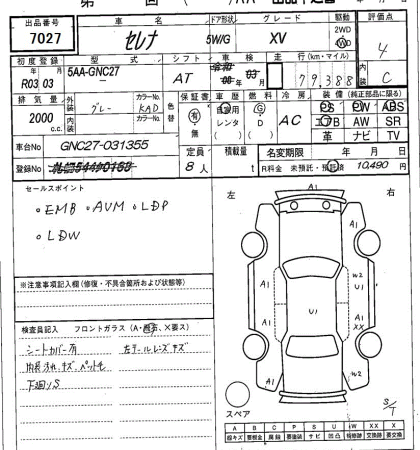 第 回
出品番号 車名 ドア形状 グレード 駆動 評価点
7027 セレナ 5W/G XV 2WD 4WD 4
初度登録 型式 シフト 車検 走行(km・マイル) 内装
R03 年 03 月 5AA-GNC27 AT 03 79,388 C
排気量 外装 グレー カラーNo. KAD 色替 保証書 車歴 燃料 冷房 装備(純正部品に限る)
2000 c.c. 内装 カラーNo. 有・無 自家用 レンタ G D AC PS PW ABS
エアB AW SR
革 ナビ TV
車台No GNC27-031355 定員 積載量 名変期限 年 月 日
登録No 8人 t R料金 未預託・預託済 10,490 円
セールスポイント
・EMB ・AVM ・LDP
・LDW
左 右
A1
A1 W2
U1 U1
A1 A1
XX
A1 W2
※注意事項記入欄(修復・不具合箇所および状態等)
検査員記入 フロントガラス(A・無・X要ス)
シートカバー有 左テールレンズキズ
内装汚れ、キズ、ペットモ
下廻りS
スペア S/T
A B C P S U W XX X
線キズ 要板金 腐蝕 要塗装 サビ 凹凸 補修跡 交換跡 要交換